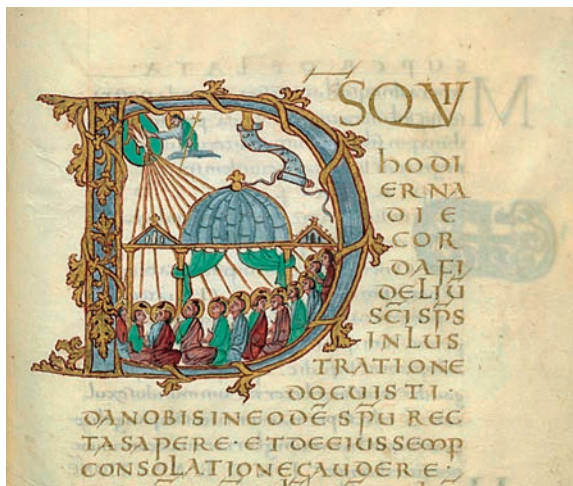 D̄S QVI
HODI
ERNA
DIE
COR
DA FI
DELIŪ
SC̄I SP̄S
INLUS
TRATIONE
DOCUISTI·
DA NOBIS IN EODĒ SPŪ REC
TA SAPERE· ET DE EIUS SEMP
CONSOLATIONE GAUDERE·